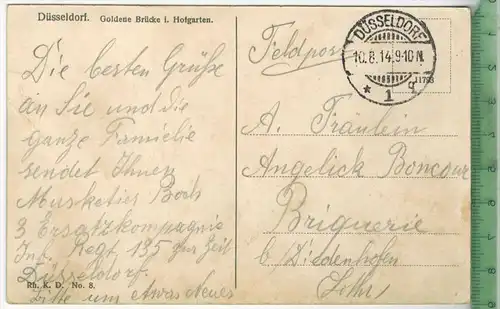 Düsseldorf. Goldene Brücke i. Hofgarten.
Die besten Grüße
an Sie und die
ganze Famielie
sendet Ihnen
Musketier Boch
3 Ersatzkompagnie
Inf. Regt 135 zur Zeit
Düsseldorf.
Bitte um etwas Neues
Rh. K. D. No. 8.
Feldpost
DÜSSELDORF
10.8.14.9-10 N.
* 1 q
11768
A. Fräulein
Angelick Boncour
Briquerie
b. Diedenhofen
Lothr.